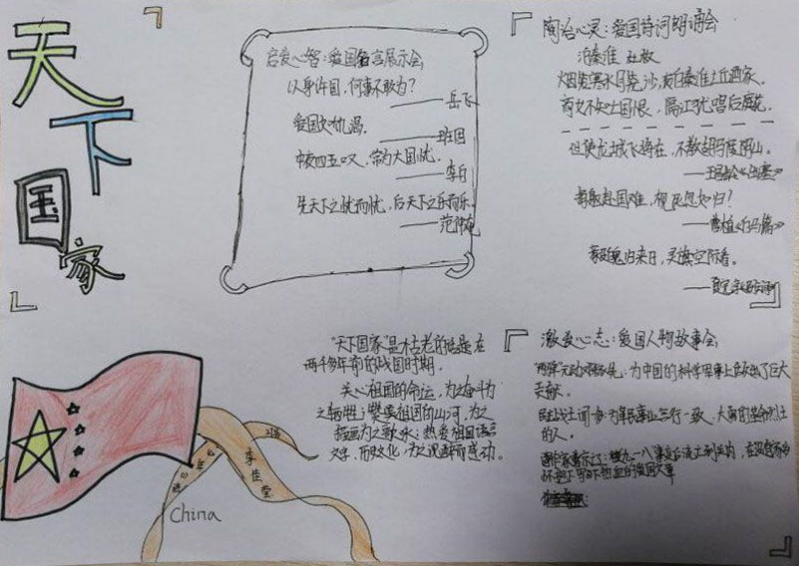 天下国家
启发心智：爱国名言展示会
以身许国，何事不敢为？
——岳飞
爱国如饥渴。
——班固
中夜四五叹，常为大国忧。
——李白
先天下之忧而忧，后天下之乐而乐
——范仲淹
陶冶心灵：爱国诗词朗诵会
泊秦淮 杜牧
烟笼寒水月笼沙，夜泊秦淮近酒家。
商女不知亡国恨，隔江犹唱后庭花。
但使龙城飞将在，不教胡马度阴山。
——王昌龄《出塞》
捐躯赴国难，视死忽如归？
——曹植《白马篇》
毅魄归来日，灵旗空际看。
——夏完淳
"天下国家"是个古老的话题，在
两千多年前的战国时期，
关心祖国的命运，为之奋斗为
之牺牲；赞美祖国的山河，为之
描画为之歌咏；热爱祖国语言
文字，历史文化，为之沉醉而感动。
激发心志：爱国人物故事会
"两弹"元勋邓稼先：为中国的科学军事上做出了巨大
贡献。
的人。
China